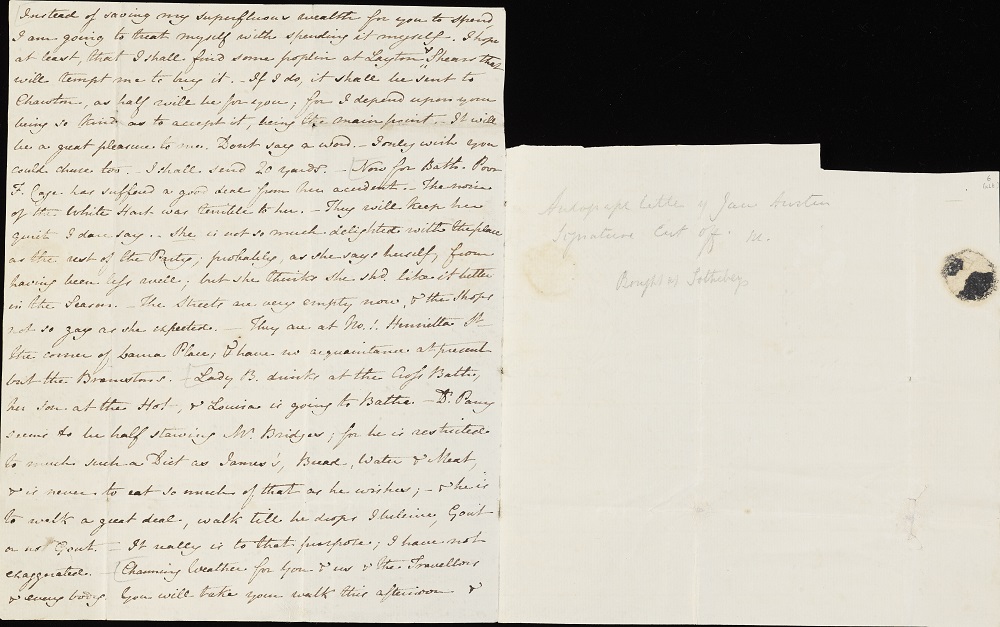 Instead of saving my superfluous wealth for you to spend
I am going to treat myself with spending it myself. I hope
at least, that I shall find some poplin at Layton & Shears that
will tempt me to buy it. - If I do, it shall be sent to
Chawton, as half will be for you; for I depend upon your
being so kind as to accept it, being the main point. - It will
be a great pleasure to me. Don't say a word. - I only wish you
could chuse too. - I shall send 20 yards. - Now for Bath. Poor
F. Cage has suffered a good deal from her accident. - The noise
of the White Hart was terrible to her. - They will keep her
quiet I dare say. - She is not so much delighted with the place
as the rest of the Party; probably, as she says herself, from
having been less well; but she thinks she shd. like it better
in the Season. - The Streets are very empty now, & the Shops
not so gay as she expected. - They are at No. 1. Henrietta St
the corner of Laura Place; & have no acquaintance at present
but the Bramstons. - Lady B. drinks at the Cross Bath,
her son at the Hot, & Louisa is going to Bathe. - Dr. Parry
seems to be half starving Mr. Bridges; for he is restricted
to much such a Diet as James's, Bread, Water & Meat,
& is never to eat so much of that as he wishes; - & he is
to walk a great deal, walk till he drops I believe, Gout
or not Gout. - It really is to that purpose; I have not
exaggerated. - Charming Weather for you & us & the Travellers
& every body. You will take your walk this afternoon &
Autograph letter of Jane Austen
Signature Cut off.
Bought at Sothebys
6